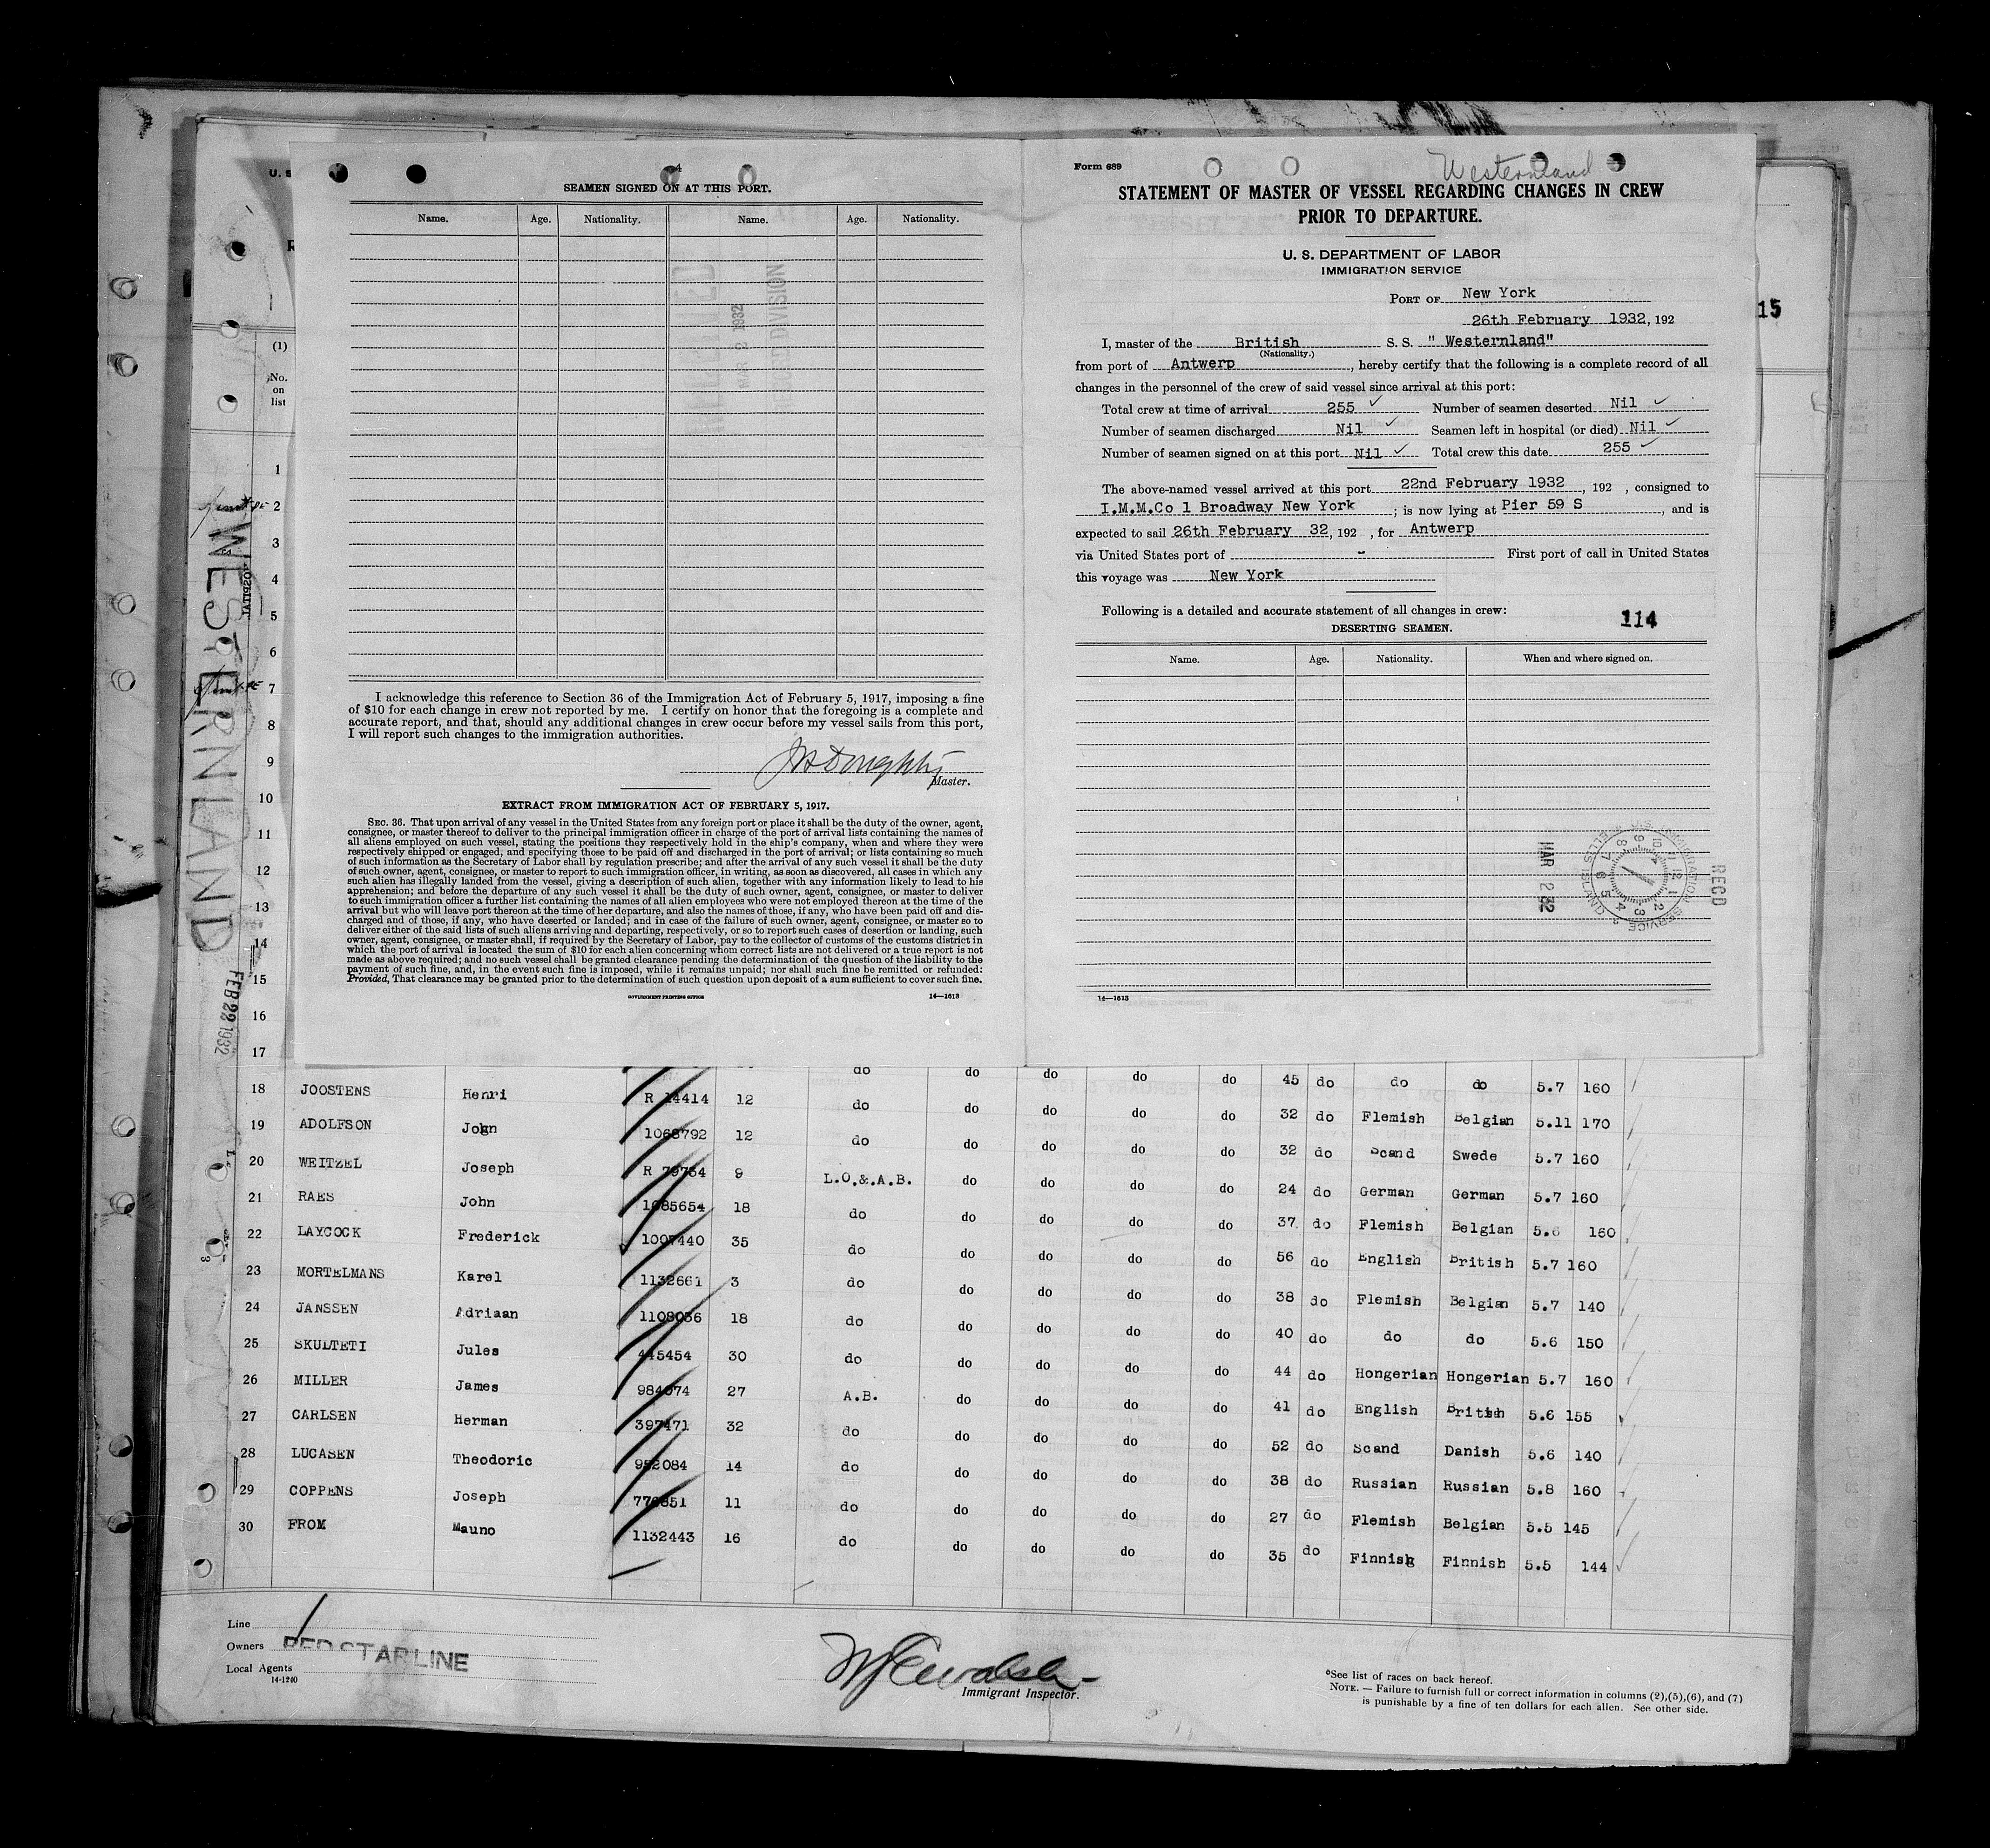 SEAMEN SIGNED ON AT THIS PORT.
Name. Age. Nationality. Name. Age. Nationality.
I acknowledge this reference to Section 36 of the Immigration Act of February 5, 1917, imposing a fine
of $10 for each change in crew not reported by me. I certify on honor that the foregoing is a complete and
accurate report, and that, should any additional changes in crew occur before my vessel sails from this port,
I will report such changes to the immigration authorities.
Master.
EXTRACT FROM IMMIGRATION ACT OF FEBRUARY 5, 1917.
SEC. 36. That upon arrival of any vessel in the United States from any foreign port or place it shall be the duty of the owner, agent,
consignee, or master thereof to deliver to the principal immigration officer in charge of the port of arrival lists containing the names of
all aliens employed on such vessel, stating the positions they respectively hold in the ship's company, when and where they were
respectively shipped or engaged, and specifying those to be paid off and discharged in the port of arrival; or lists containing so much
of such information as the Secretary of Labor shall by regulation prescribe; and after the arrival of any such vessel it shall be the duty
of such owner, agent, consignee, or master to report to such immigration officer, in writing, as soon as discovered, all cases in which any
such alien has illegally landed from the vessel, giving a description of such alien, together with any information likely to lead to his
apprehension; and before the departure of any such vessel it shall be the duty of such owner, agent, consignee, or master to deliver
to such immigration officer a further list containing the names of all alien employees who were not employed thereon at the time of the
arrival but who will leave port thereon at the time of her departure, and also the names of those, if any, who have been paid off and dis-
charged and of those, if any, who have deserted or landed; and in case of the failure of such owner, agent, consignee, or master so to
deliver either of the said lists of such aliens arriving and departing, respectively, or so to report such cases of desertion or landing, such
owner, agent, consignee, or master shall, if required by the Secretary of Labor, pay to the collector of customs of the customs district in
which the port of arrival is located the sum of $10 for each alien concerning whom correct lists are not delivered or a true report is not
made as above required; and no such vessel shall be granted clearance pending the determination of the question of the liability to the
payment of such fine, and, in the event such fine is imposed, while it remains unpaid; nor shall such fine be remitted or refunded:
Provided, That clearance may be granted prior to the determination of such question upon deposit of a sum sufficient to cover such fine.
GOVERNMENT PRINTING OFFICE 14—1613
Form 689
Westernland
STATEMENT OF MASTER OF VESSEL REGARDING CHANGES IN CREW
PRIOR TO DEPARTURE.
U. S. DEPARTMENT OF LABOR
IMMIGRATION SERVICE
PORT OF New York
26th February 1932, 192
I, master of the British S. S. " Westernland"
(Nationality.)
from port of Antwerp, hereby certify that the following is a complete record of all
changes in the personnel of the crew of said vessel since arrival at this port:
Total crew at time of arrival 255 Number of seamen deserted Nil
Number of seamen discharged Nil Seamen left in hospital (or died) Nil
Number of seamen signed on at this port Nil Total crew this date 255
The above-named vessel arrived at this port 22nd February 1932, 192 , consigned to
I.M.M.Co 1 Broadway New York ; is now lying at Pier 59 S, and is
expected to sail 26th February 32, 192 , for Antwerp
via United States port of - First port of call in United States
this voyage was New York
Following is a detailed and accurate statement of all changes in crew:
114
DESERTING SEAMEN.
Name. Age. Nationality. When and where signed on.
U.S. IMMIGRATION SERVICE ELLIS ISLAND
RECD
MAR 2 32
14—1613
15
U. S
(1)
No.
on
list
WESTERNLAND
HOSPITAL
FEB 22 1932
1
2
3
4
5
6
7
8
9
10
11
12
13
14
15
16
17
do do do do do 45 do do do 5.7 160
18 JOOSTENS Henri R 14414 12 do do do do do 32 do Flemish Belgian 5.11 170
19 ADOLFSON John 1068792 12 do do do do do 32 do Scand Swede 5.7 160
20 WEITZEL Joseph R 79754 9 L.O.&.A.B. do do do do 24 do German German 5.7 160
21 RAES John 1085654 18 do do do do do 37 do Flemish Belgian 5.6 160
22 LAYCOCK Frederick 1007440 35 do do do do do 56 do English British 5.7 160
23 MORTELMANS Karel 1132661 3 do do do do do 38 do Flemish Belgian 5.7 140
24 JANSSEN Adriaan 1108036 18 do do do do do 40 do do do 5.6 150
25 SKULTETI Jules 445454 30 do do do do do 44 do Hongerian Hongerian 5.7 160
26 MILLER James 984074 27 A.B. do do do do 41 do English British 5.6 155
27 CARLSEN Herman 397471 32 do do do do do 52 do Scand Danish 5.6 140
28 LUCASEN Theodoric 952084 14 do do do do do 38 do Russian Russian 5.8 160
29 COPPENS Joseph 11 do do do do do 27 do Flemish Belgian 5.5 145
30 FROM Mauno 1132443 16 do do do do do 35 do Finnish Finnish 5.5 144
Line
Owners RED STAR LINE
Local Agents
14-1240
Immigrant Inspector.
*See list of races on back hereof.
NOTE. — Failure to furnish full or correct information in columns (2),(5),(6), and (7)
is punishable by a fine of ten dollars for each alien. See other side.